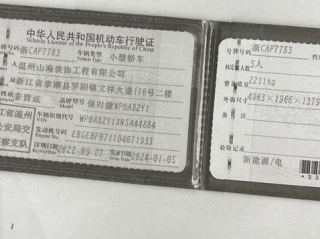 中华人民共和国机动车行驶证
Vehicle License of the People's Republic of China
号牌号码 浙CAP7783 车辆类型 小型轿车
Vehicle Type
人 温州山海装饰工程有限公司
浙江省泰顺县罗阳镇文祥大道116号二楼
非营运 品牌型号 保时捷WP0AB2Y1
江省温州
公安局交
察支队
车辆识别代号 WP0AB2Y1XNSA44884
发动机号码 EBGEBF071104071933
Engine No.
注册日期 2022-09-07 发证日期 2024-01-05
Register Date Issue Date
号牌号码 浙CAP7783
5人
2211kg
外廓尺寸 4963×1966×1379
检验记录
新能源/电